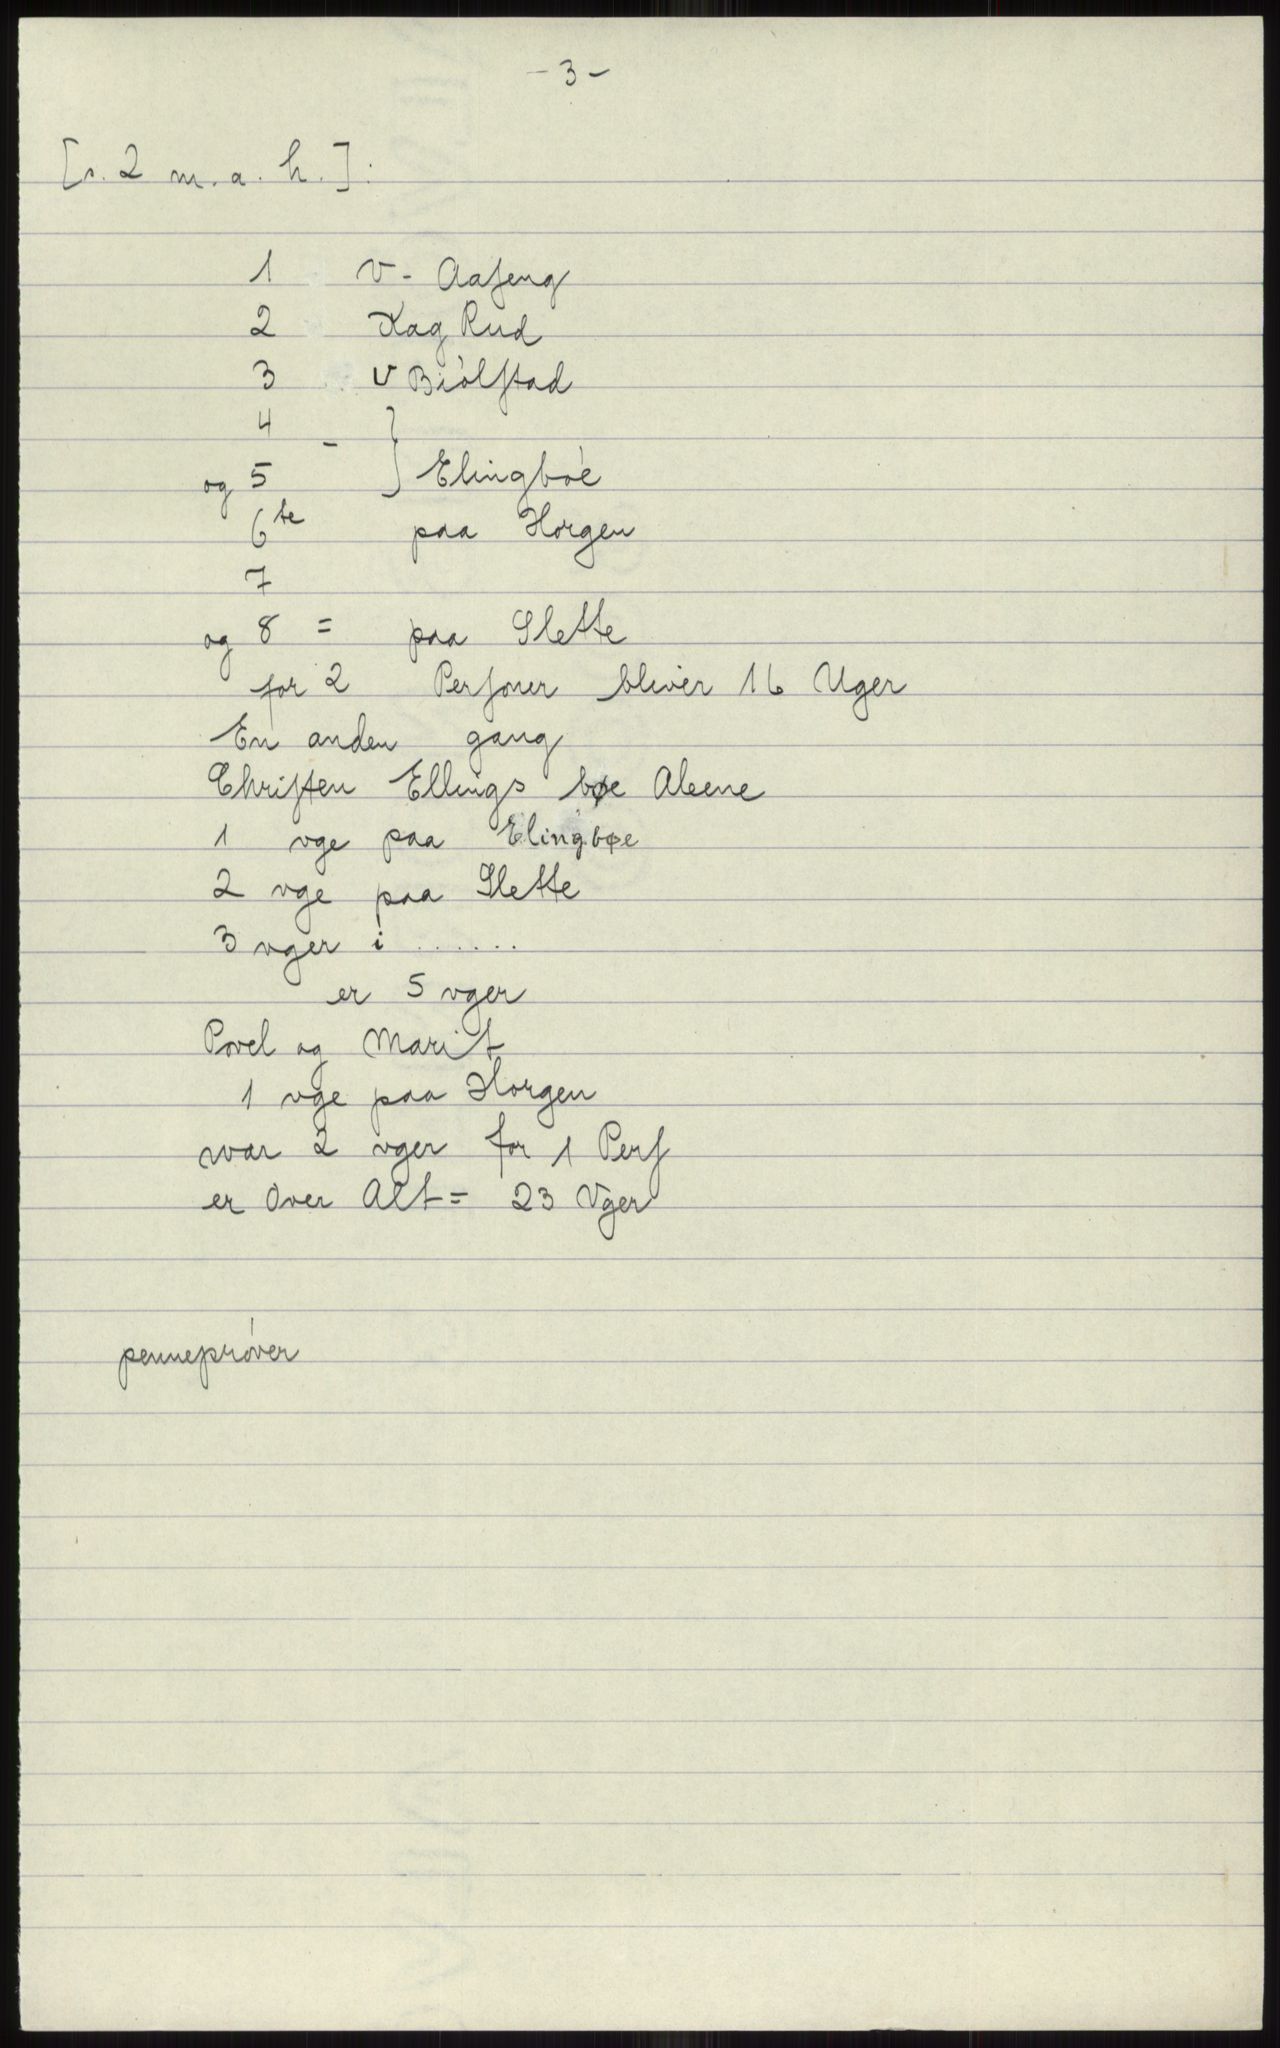 - 3 -
[s. 2 m. a. h.]:
1 V - Aaſeng
2 Kag Rud
3 V Biólſtad
4 -
og 5 } Elingbóe
6te paa Horgen
7
og 8 = paa Slette
for 2 Perſoner bliver 16 Uger
En anden gang
Chriſten Ellings bøe Aleene
1 vge paa Elingbøe
2 vge paa Slette
3 vger i .......
er 5 vger
Povel og Marit
1 vge paa Horgen
war 2 vger for 1 Perſ
er Over Alt = 23 Vger
pennepróver